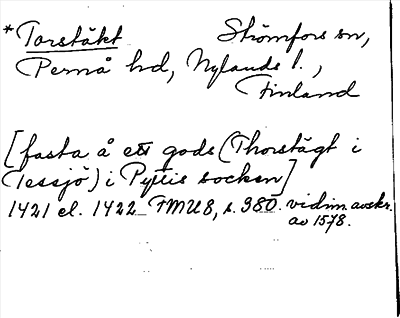 *Torstäkt Strömfors sn,
Pernå hd, Nylands l.,
Finland
[fasta å ett gods (Thorstägt i
Tessjö) i Pyttis socken]
1421 el. 1422 FMU 8, s. 380. vidim. avskr.
av 1578.